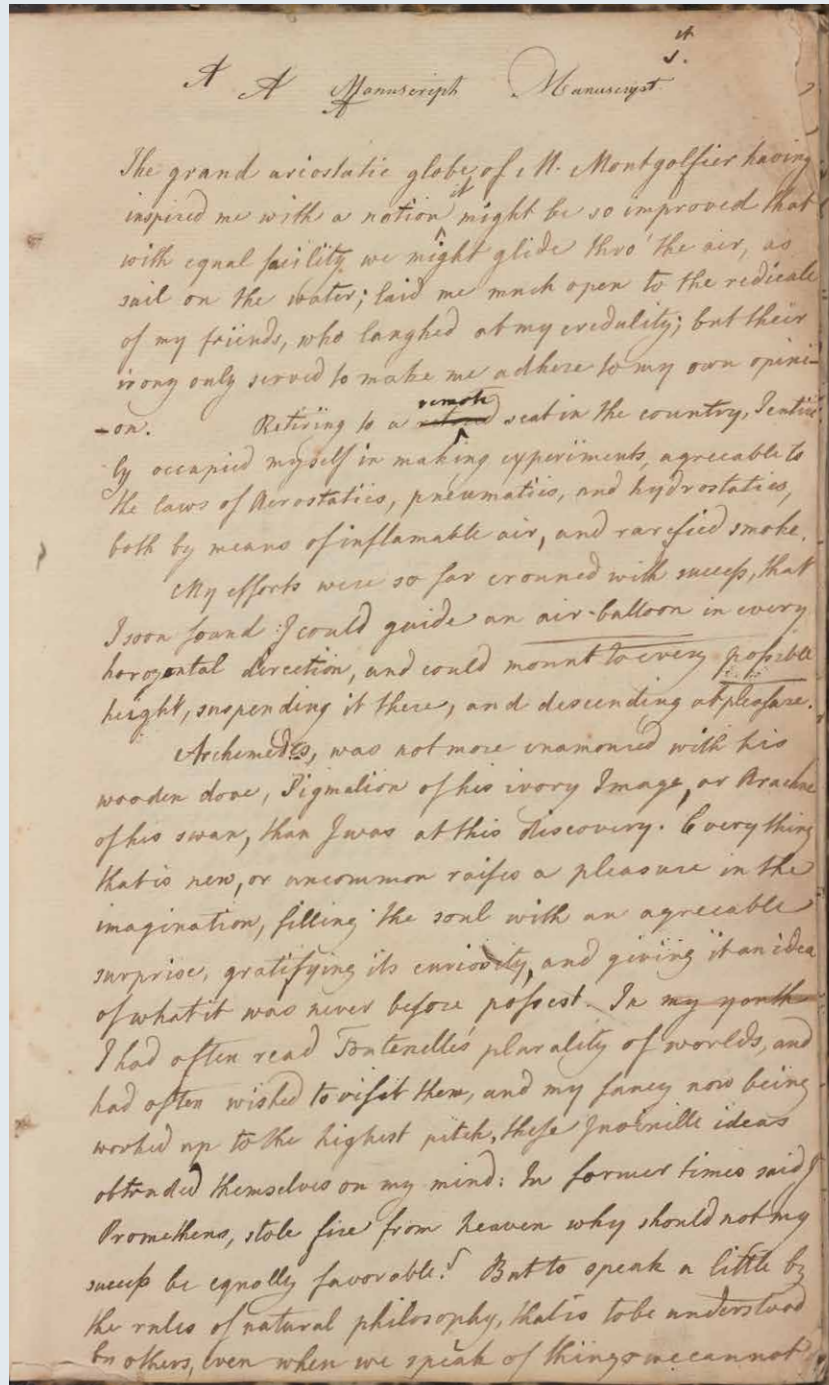 it
s.
A A Manuscript Manuscript
The grand ariostatic globe, of M. Montgolfier having
it
inspired me with a notion might be so improved that
with equal facility we might glide thro' the air, as
sail on the water; laid me much open to the redicule
of my friends, who laughed at my credulity; but their
irony only served to make me adhere to my own opini-
-on. Retiring to a remote seat in the country, I entire
ly occupied myself in making experiments, agreeable to
the laws of Aerostatics, pneumatics, and hydrostatics,
both by means of inflamable air, and rarefied smoke.
My efforts were so far crouned with success, that
I soon found I could guide an air-balloon in every
horozontal direction, and could mount to every possible
height, suspending it there, and descending at pleasure.
Archemedes, was not more enamoured with his
wooden dove, Pigmalion of his ivory Image, or Arachne
of his swan, than I was at this discovery. Every thing
that is new, or uncommon raises a pleasure in the
imagination, filling the soul with an agreeable
surprise, gratifying its curiosity, and giving it an idea
of what it was never before possest. In my youth
I had often read Fontenelle's plurality of worlds, and
had often wished to visit them, and my fancy now being
worked up to the highest pitch, these ideas
obtruded themselves on my mind: In former times said I
Prometheus, stole fire from heaven why should not my
success be equally favorable? But to speak a little by
the rules of natural philosophy, that is to be understood
by others, even when we speak of things we cannot